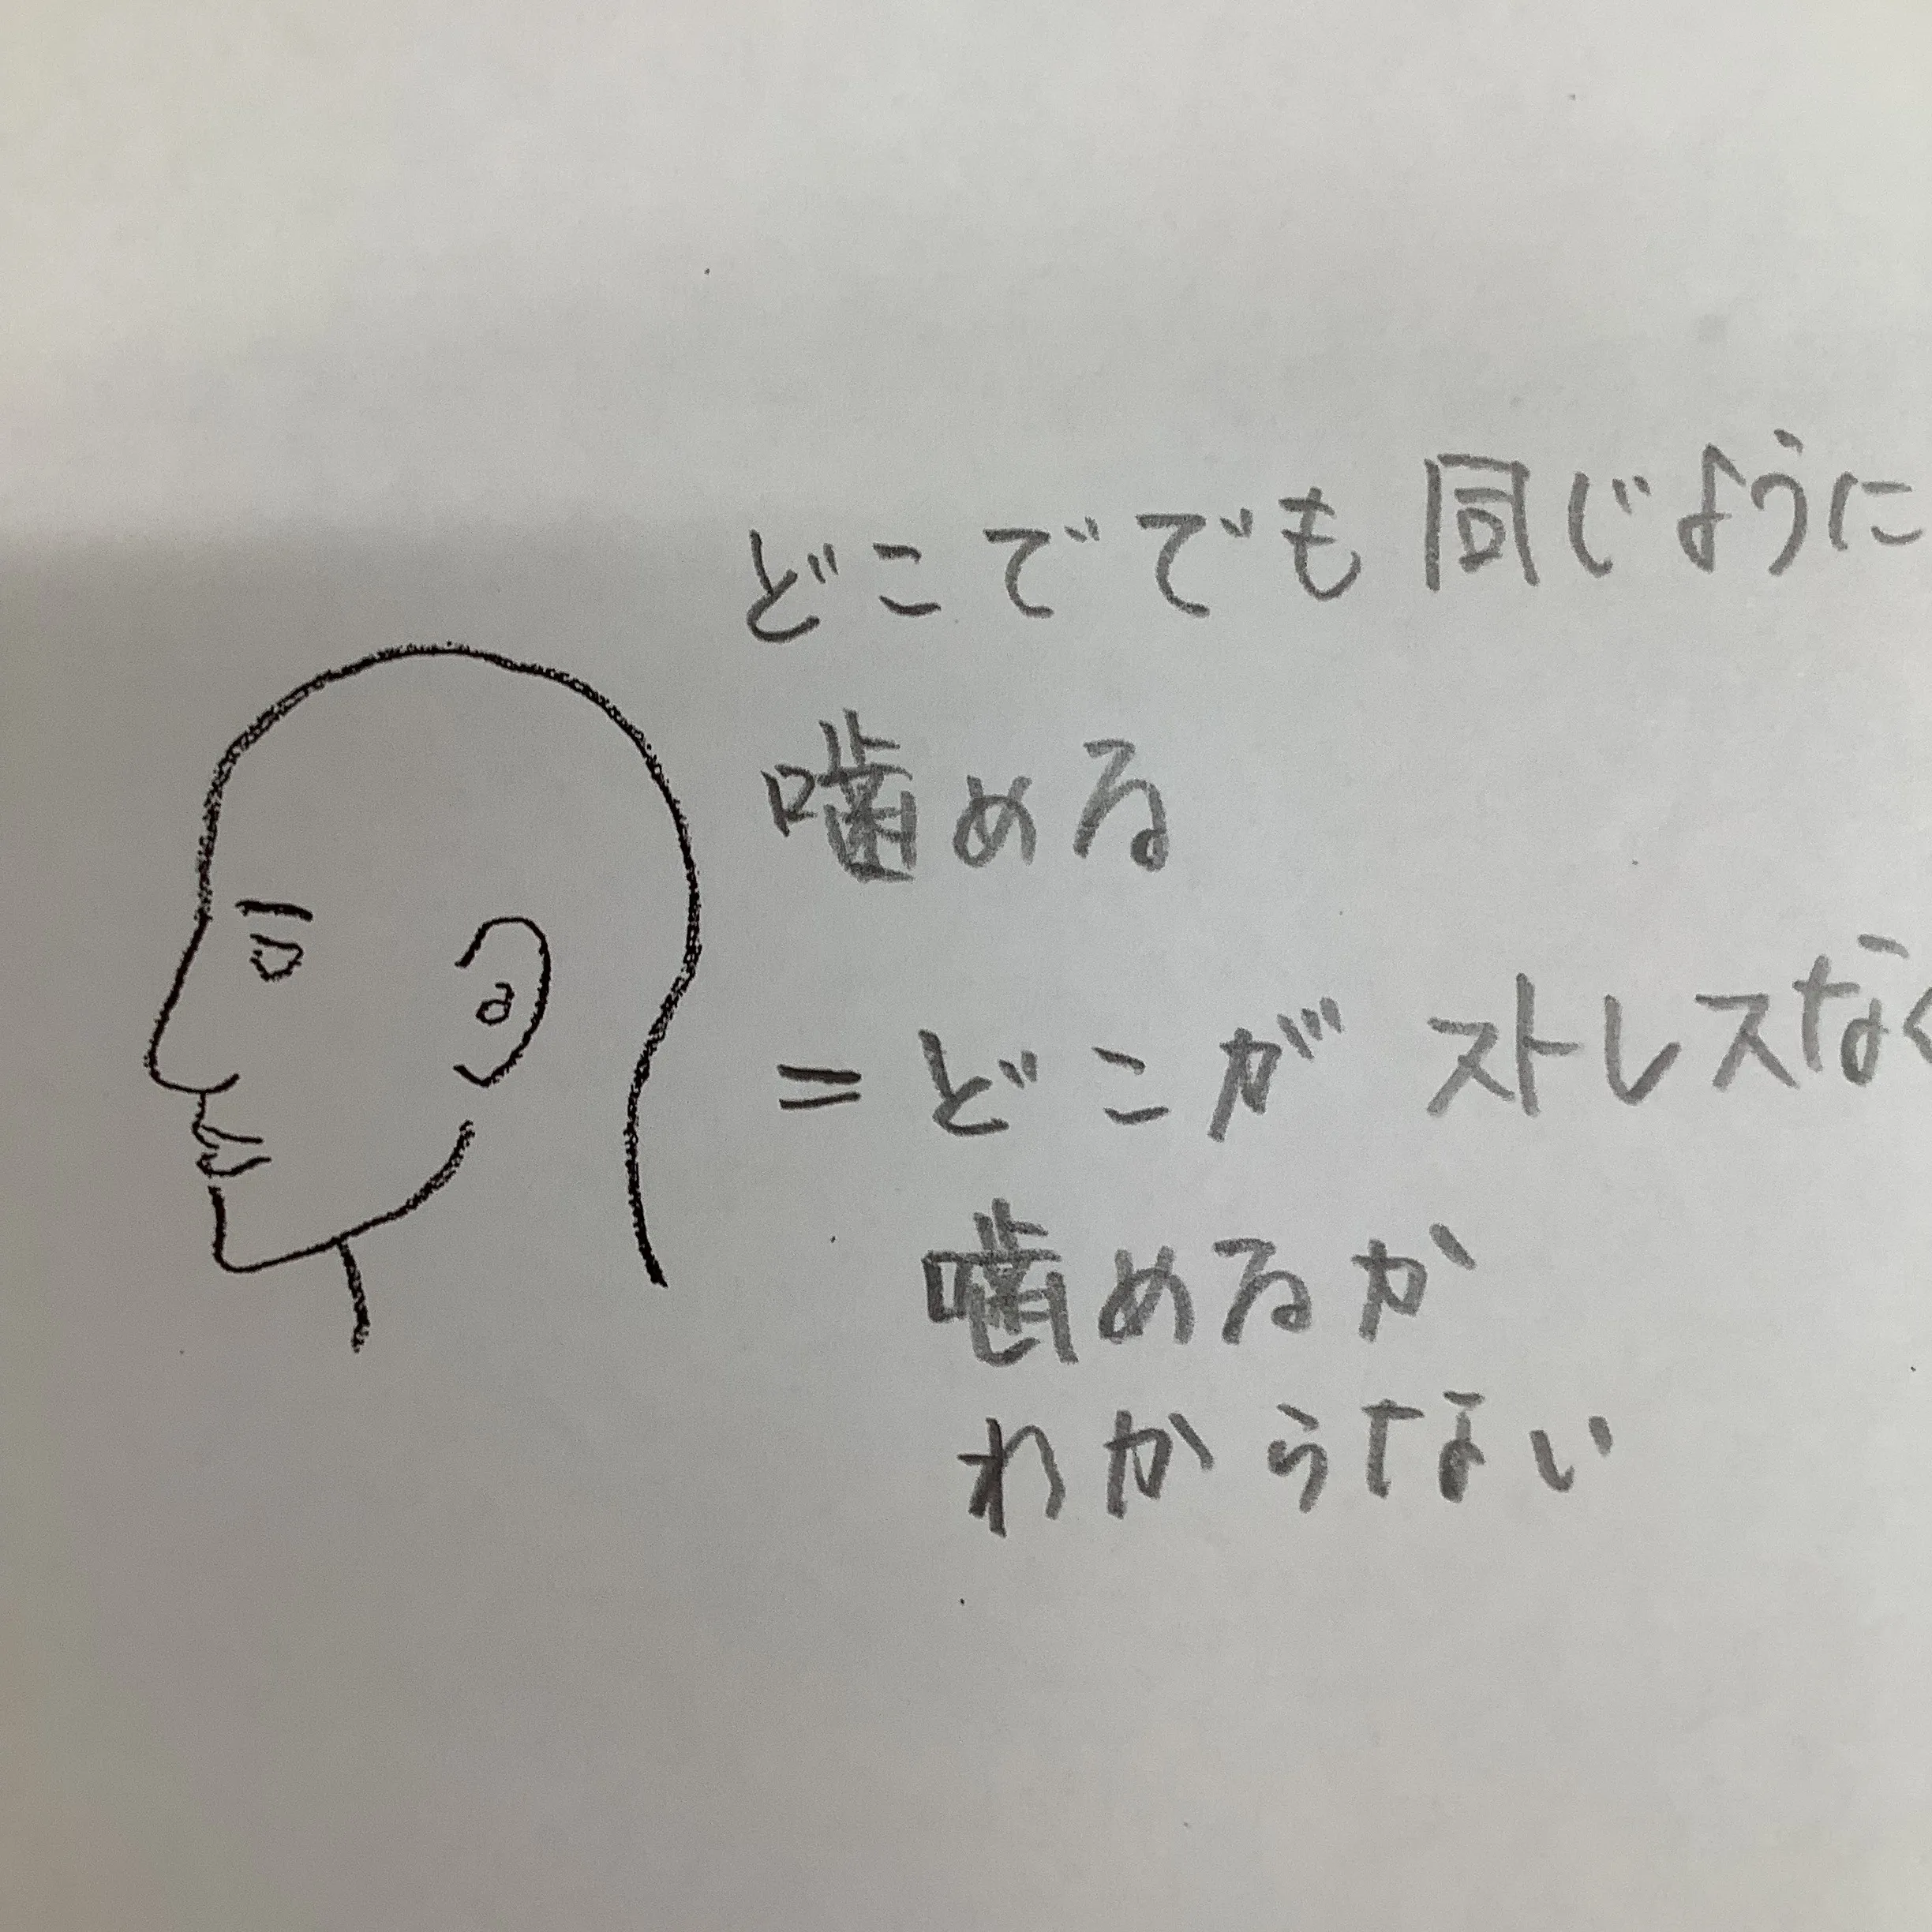 どこででも同じように
噛める
=どこがストレスなく
噛めるか
わからない